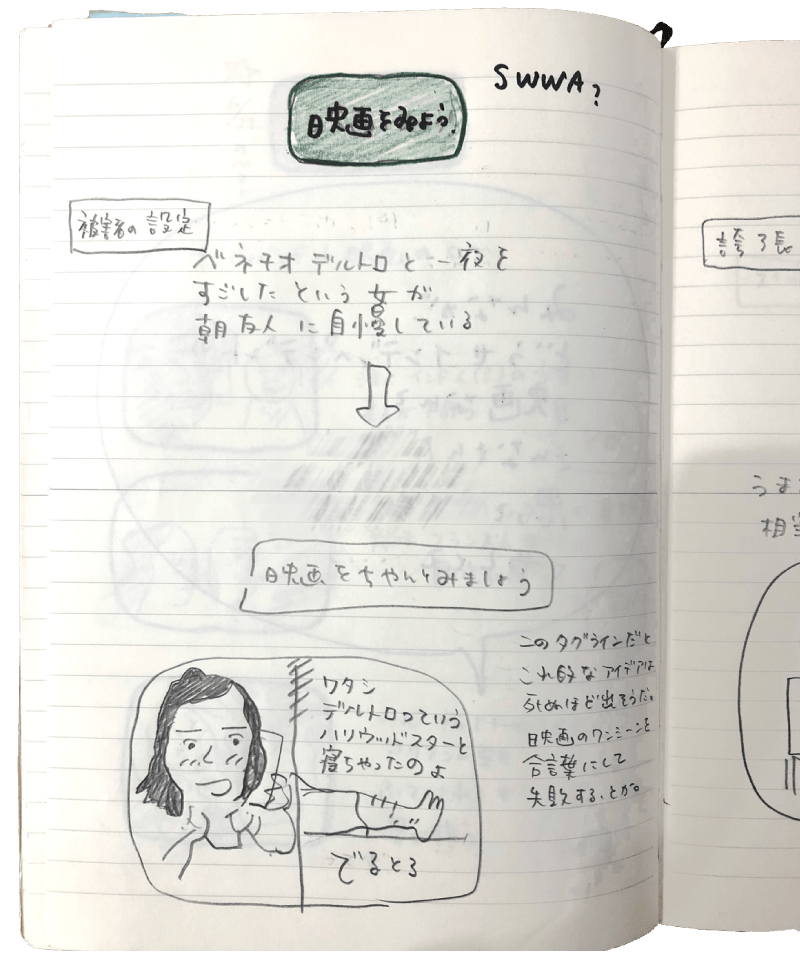 SWWA?
映画をみよう.
被害者の設定
ベネチオ デルトロと一夜を
すごしたという女が
朝友人に自慢している
映画をちゃんとみましょう
ワタシ
デルトロっていう
ハリウッドスターと
寝ちゃったのよ
でるとろ
このタグラインだと
これ的なアイデアは
死ぬほど出そうだ。
映画のワンシーンを
合言葉にして
失敗する、とか。
うま
相当